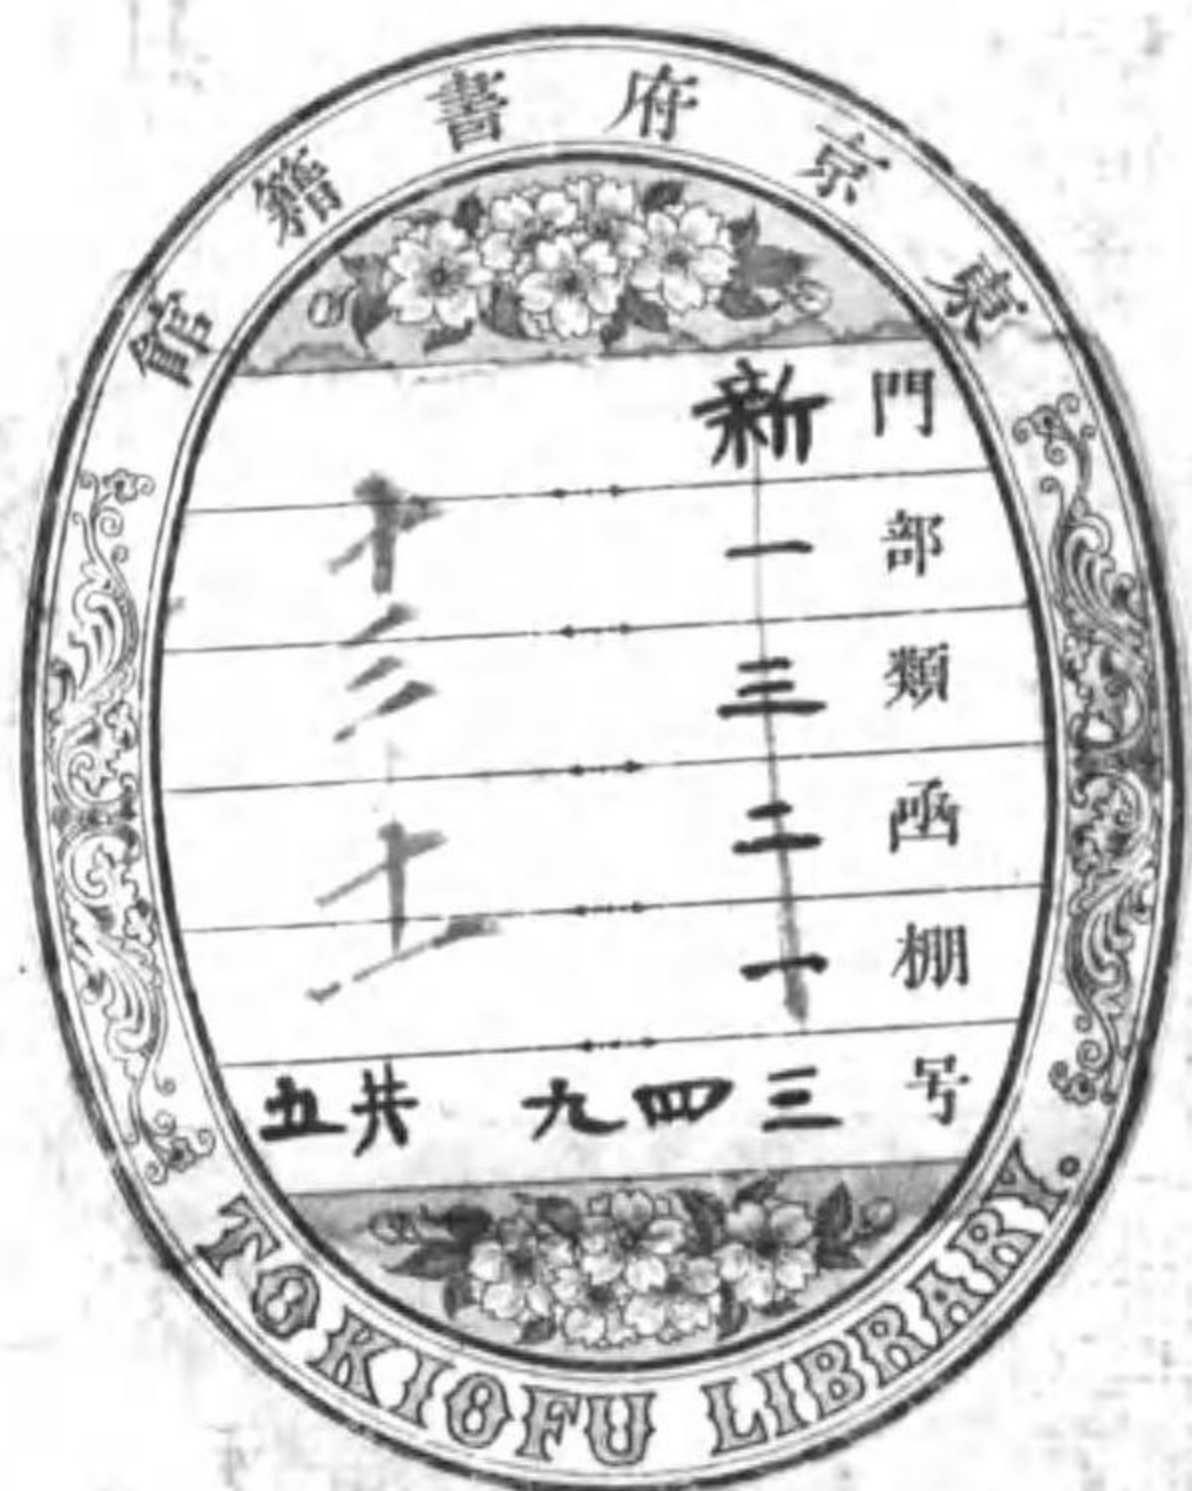 東京府書籍館
門 新
部 一
類 三
函 二
棚 一
号 三四九 共五
TOKIOFU LIBRARY.